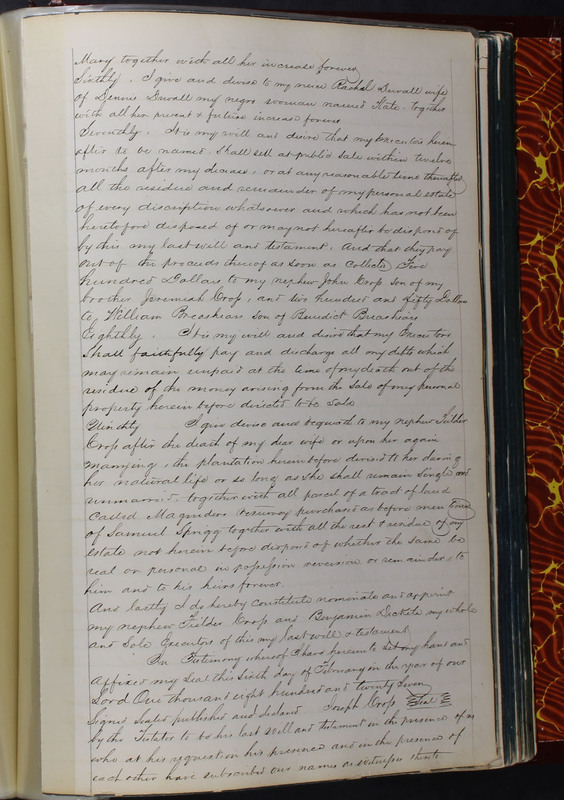 Mary together with all her increase forever
Sixthly. I give and devise to my niece Rachel Duvall wife
of Dennis Duvall my negro woman named Kate together
with all her present & future increase forever
Seventhly. It is my will and desire that my Executors herein
after to be named shall sell at public sale within twelve
months after my decease, or at any reasonable time thereafter
all the residue and remainder of my personal estate
of every discription whatsoever and which has not been
heretofore disposed of or may not hereafter be disposed of
by this my last will and testament, And that they pay
out of the proceeds thereof as soon as collected, Five
hundred Dollars to my nephew John Crop son of my
brother Jeremiah Crop, and two hundred and fifty Dollars
to William Brashears son of Benedict Brashears
Eighthly. It is my will and desire that my Executors
shall faithfully pay and discharge all my debts which
may remain unpaid at the time of my death out of the
residue of the money arising from the sale of my personal
property herein before directed to be sold
Ninthly I give devise and bequeath to my nephew Fielder
Crop after the death of my dear wife or upon her again
marrying, the plantation herein before devised to her during
her natural life or so long as she shall remain single and
unmarried, together with all parcel of a tract of land
called Magruders purchased as before men tioned
of Samuel Sprigg together with all the rest & residue of my
estate not herein before disposed of whether the same be
real or personal in possession reversion or remainder, to
him and to his heirs forever.
And lastly I do hereby constitute nominate and appoint
my nephew Fielder Crop and Benjamin my whole
and Sole Executors of this my last will & testament
In Testimony whereof I have hereunto set my hand and
affixed my seal this sixth day of February in the year of our
Lord One thousand eight hundred and twenty seven
Signed sealed published and declared Joseph Crop Seal
by the Testator to be his last will and testament in the presence of us
who at his request in his presence and in the presence of
each other have subscribed our names as witnesses thereto